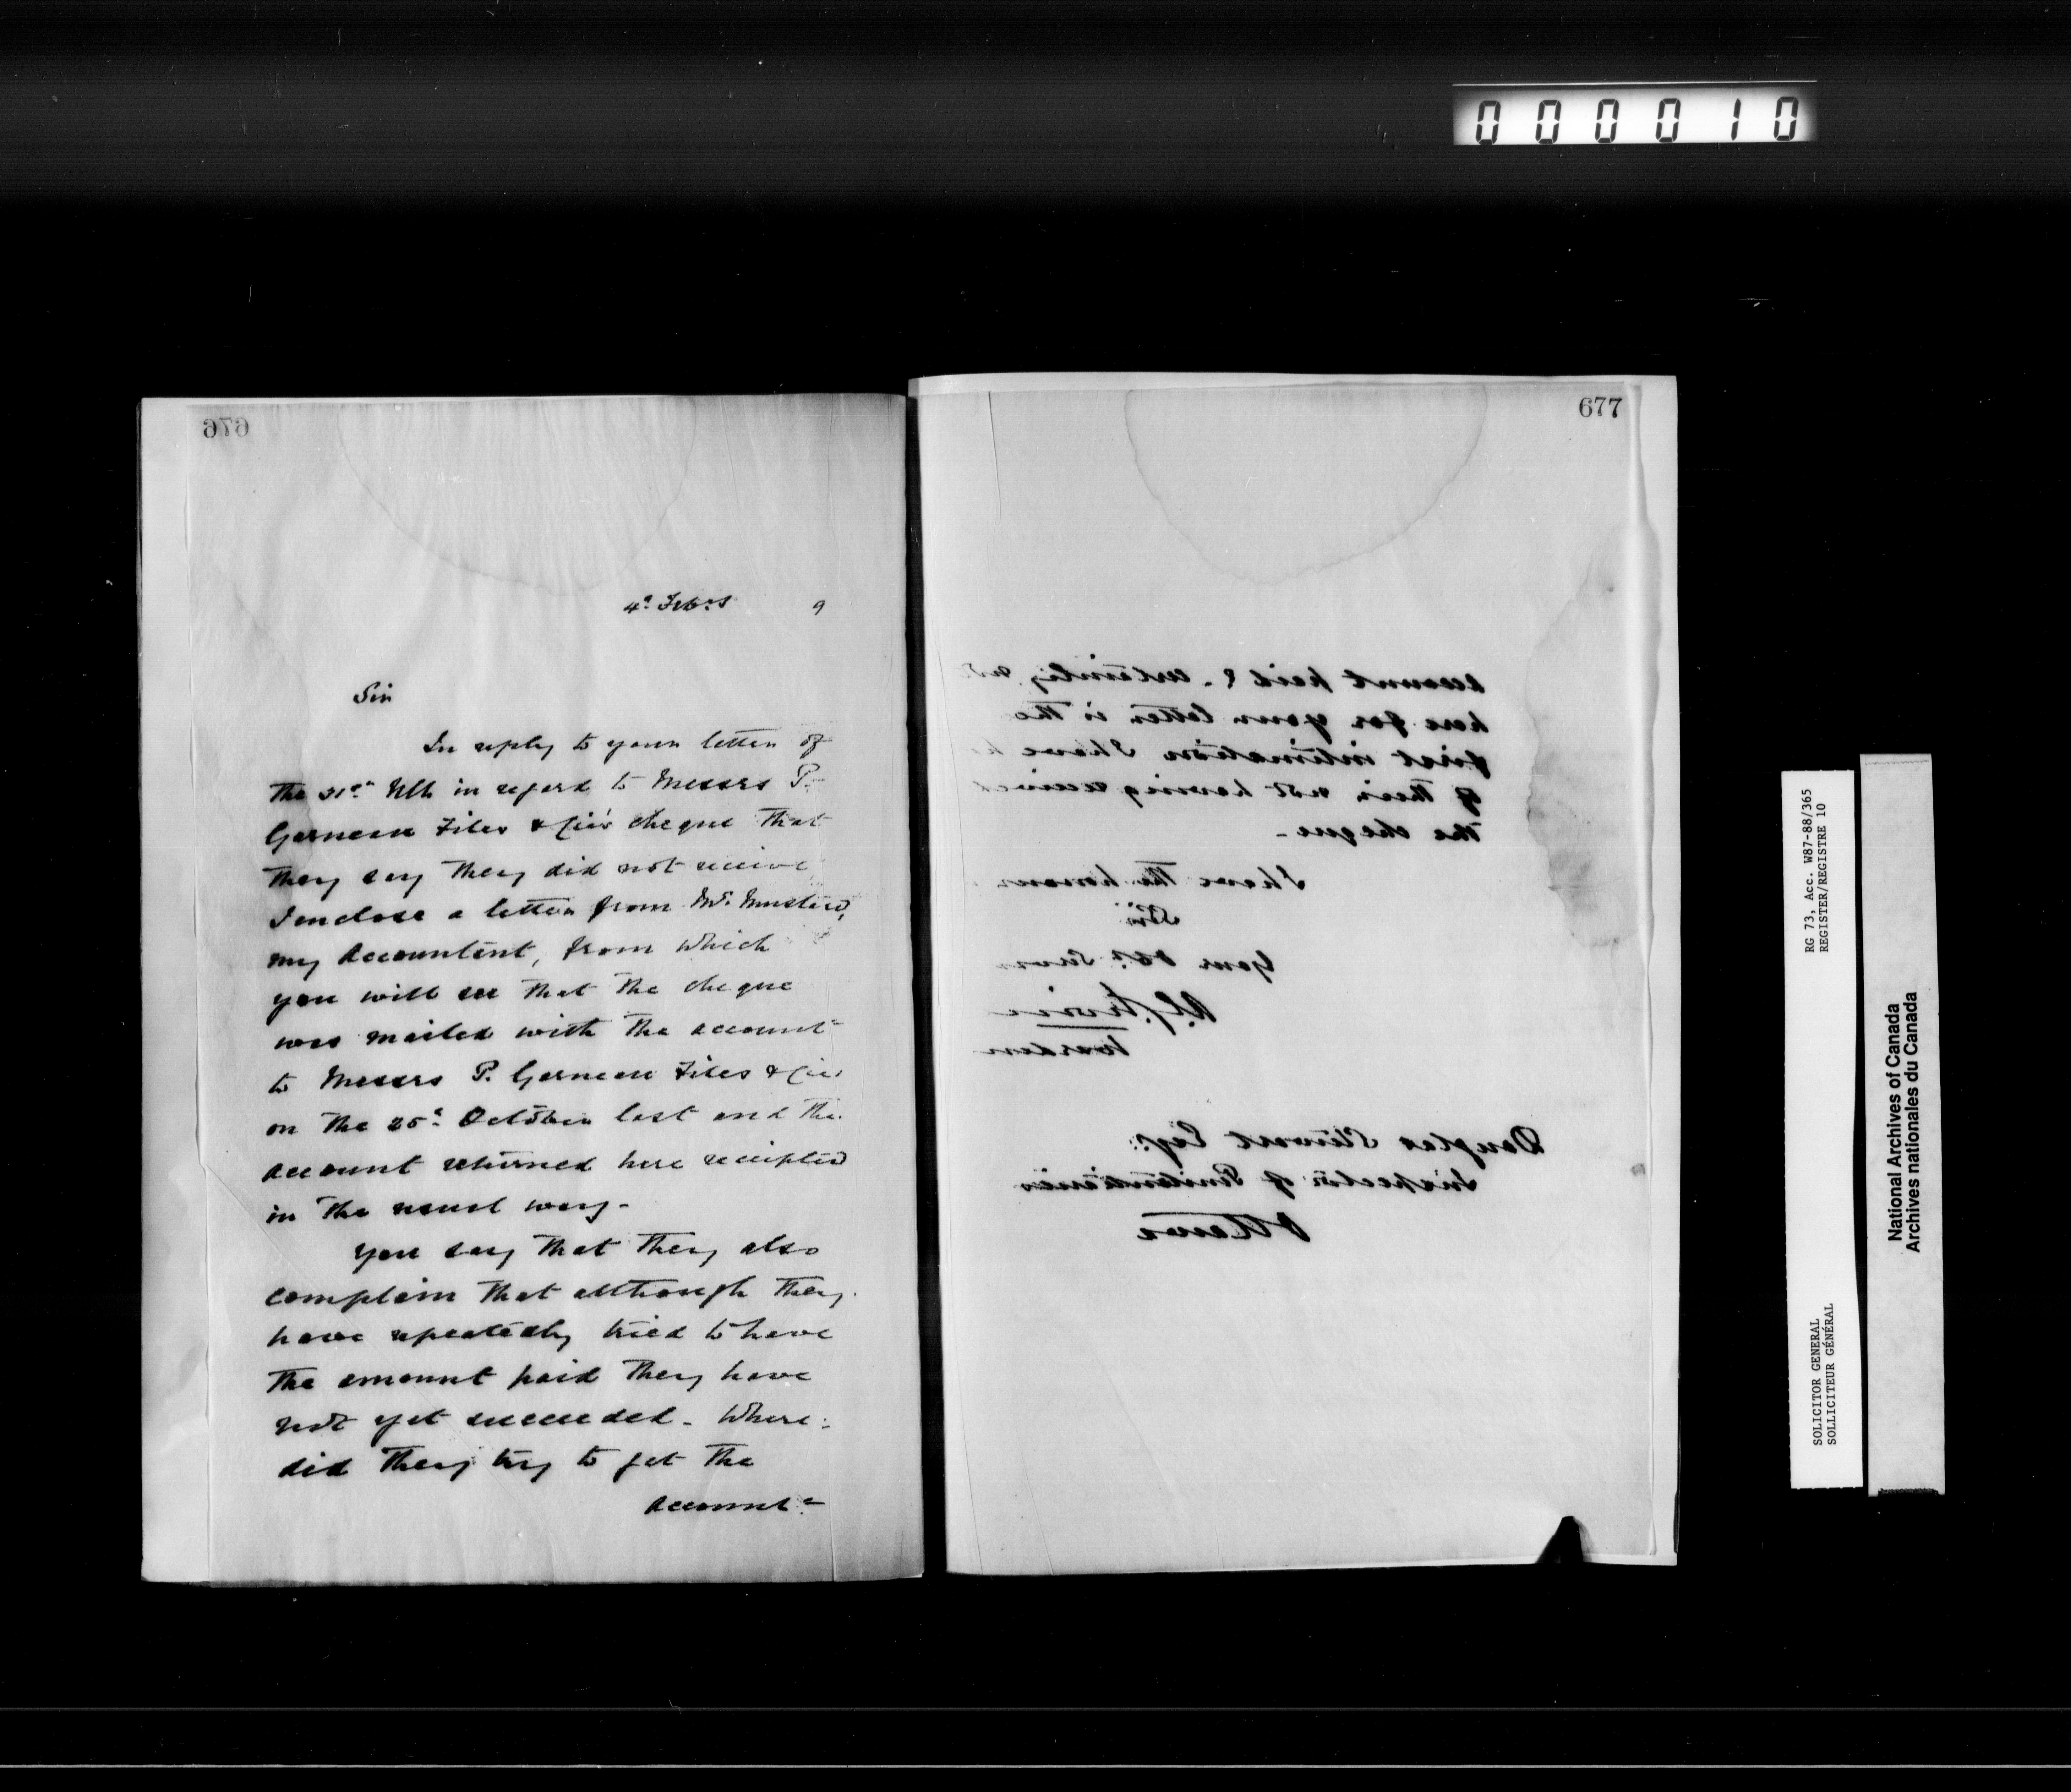 000010
676
4th Feby 9
Sir
In reply to your letter of
the 31st Ulto in regard to Messrs P.
Garneau Files & Cie's cheque that
they say they did not receive
I enclose a letter from Mr. Mustard,
my Accountant, from which
you will see that the cheque
was mailed with the account
to Messrs P. Garneau Files & Cie,
on the 25th October last and the
account returned here receipted
in the usual way -
You say that they also
complain that although they
have repeatedly tried to have
the amount paid they have
not yet succeeded - Where
did they try to get the
account
677
account paid? - certainly not
here for your letter is the
first intimation I have
of their not having received
the cheque -
I have the honour
Sir
Your Obt. Serv
Irvine
Warden
Douglas Stewart Esq:
Inspector of Penitentiaries
Ottawa
RG 73, Acc. W87-88/365
REGISTER/REGISTRE 10
SOLICITOR GENERAL
SOLLICITEUR GÉNÉRAL
National Archives of Canada
Archives nationales du Canada